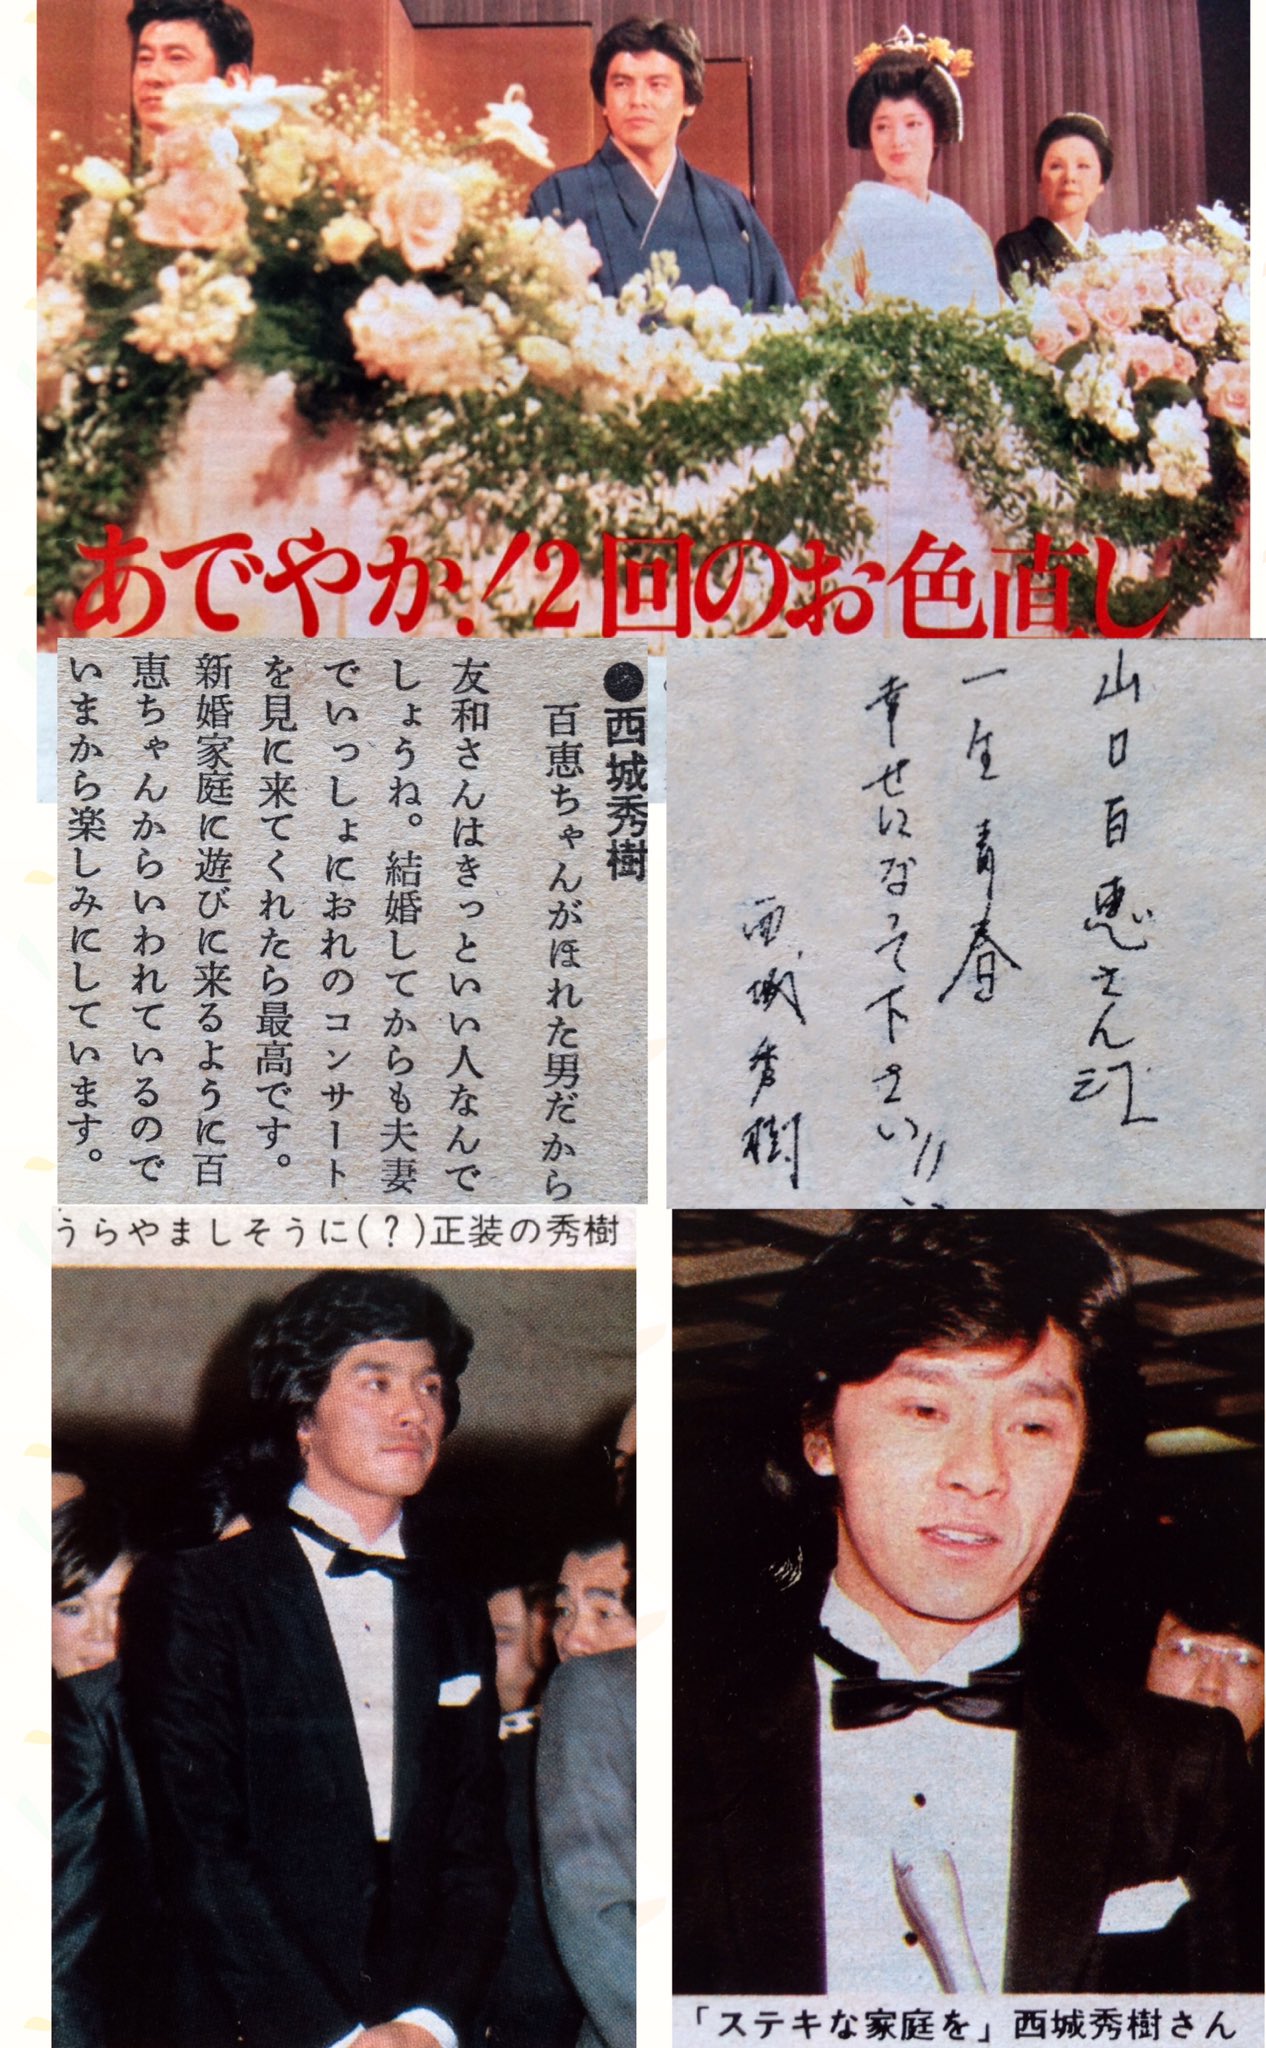 あでやか!2回のお色直し
●西城秀樹
百恵ちゃんがほれた男だから
友和さんはきっといい人なんで
しょうね。結婚してからも夫妻
でいっしょにおれのコンサート
を見に来てくれたら最高です。
新婚家庭に遊びに来るように百
恵ちゃんからいわれているので
いまから楽しみにしています。
山口百恵さん江
一生青春
幸せになって下さい!!
西城秀樹
うらやましそうに(?)正装の秀樹
「ステキな家庭を」西城秀樹さん